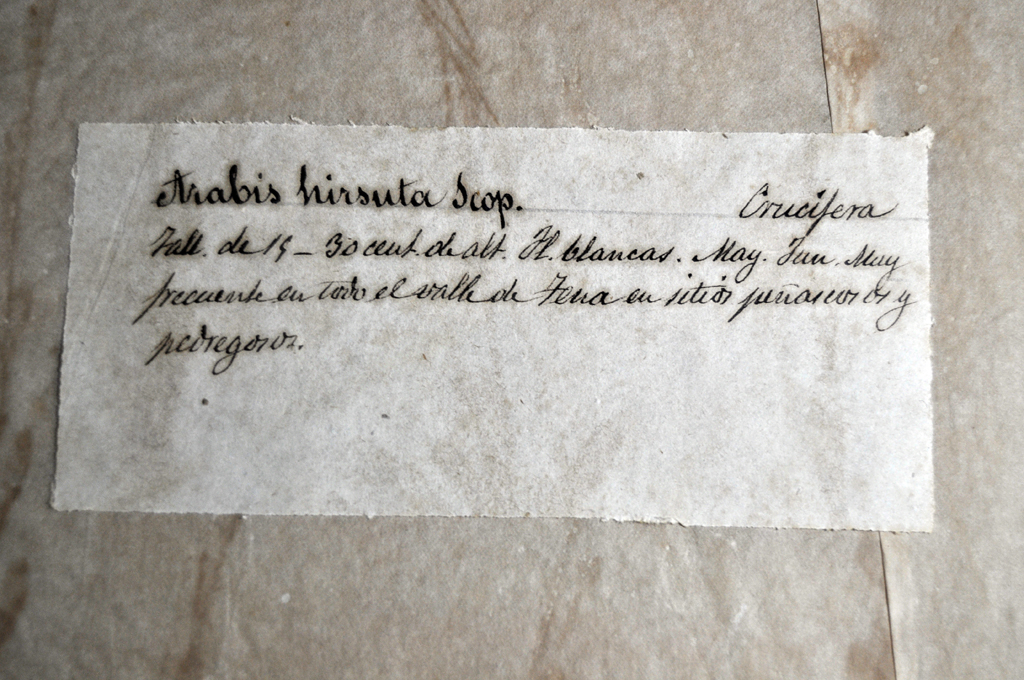 Arabis hirsuta Scop. Crucifera
Tall. de 15 – 30 cent. de alt. Fl. blancas. May. Jun. Muy
frecuente en todo el valle de Tena en sitios peñascosos y
pedregosos.